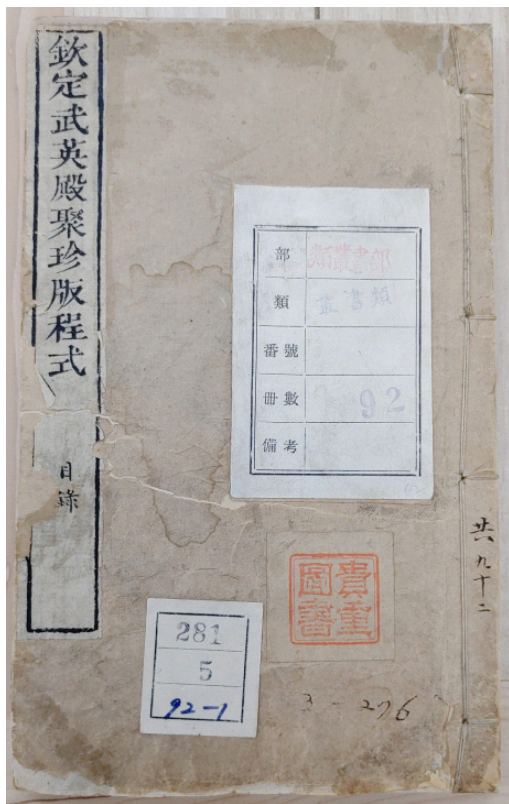 欽定武英殿聚珍版程式
目錄
部 類叢書部
類 叢書類
番號
冊數 92
備考
貴重
圖書
281
5
92-1
3-276
共九十二